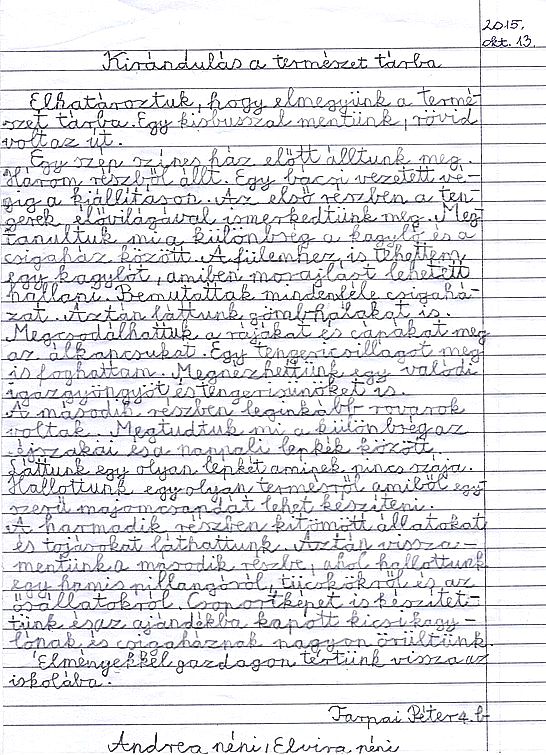 2015.
okt. 13.
Kirándulás a természet tárba
Elhatároztuk, hogy elmegyünk a termé-
szet tárba. Egy kisbusszal mentünk, rövid
volt az út.
Egy szép színes ház előtt álltunk meg.
Három részből állt. Egy bácsi vezetett vé-
gig a kiállításon. Az első részben a ten-
gerek élővilágával ismerkedtünk meg. Meg
tanultuk mi a különbség a kagyló és a
csigaház között. A fülemhez is tehettem
egy kagylót, amiben morajlást lehetett
hallani. Bemutattak mindenféle csigahá-
zat. Aztán láttunk gömbhalakat is.
Megcsodálhattuk a ráják at és cápákat meg
az álkapcsukat. Egy tengericsillagot meg
is foghattam. Megnézhettünk egy valódi
igazgyöngyöt és tengerisünöket is.
Az második részben leginkább rovarok
voltak. Megtudtuk mi a különbség az
éjszakai és a nappali lepkék között.
Láttunk egy olyan lepkét aminek nincs szája.
Hallottunk egy olyan termésről amiből egy
szerű majomcsapdát lehet készíteni.
A harmadik részben kitömött állatokat
és tojásokat láthattunk. Aztán vissza-
mentünk a második részbe, ahol hallottunk
egy hamis pillangóról, tücsökökről és az
ősállatokról. Csoportképet is készítet-
tünk és az ajándékba kapott kicsi kagy-
lónak és csigaháznak nagyon örültünk.
Élményekkel gazdagon tértünk vissza az
iskolába.
Tarpai Péter 4. b
Andrea néni, Elvira néni